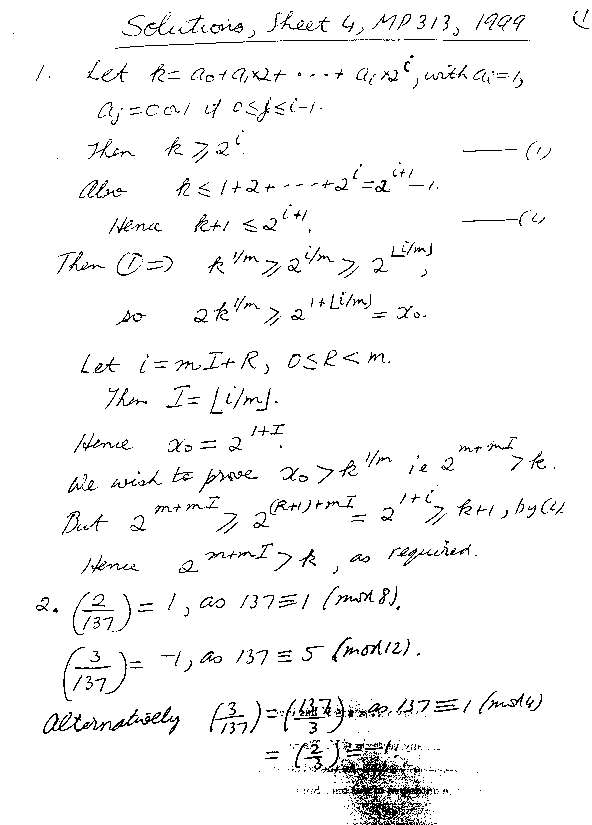 Solutions, Sheet 4, MP313, 1999 (1
1. Let k = a₀+a₁×2+ ··· + aᵢ×2ⁱ, with aᵢ=1,
aⱼ = 0 or 1 if 0≤j≤i-1.
Then k ≥ 2ⁱ. —— (1)
Also k ≤ 1+2+ ---- +2ⁱ = 2ⁱ⁺¹-1.
Hence k+1 ≤ 2ⁱ⁺¹. —— (2)
Then (1) ⇒ k^{1/m} ≥ 2^{i/m} ≥ 2^{⌊i/m⌋},
so 2k^{1/m} ≥ 2^{1+⌊i/m⌋} = x₀.
Let i = mI+R, 0≤R<m.
Then I = ⌊i/m⌋.
Hence x₀ = 2^{1+I}.
We wish to prove x₀ > k^{1/m} ie 2^{m+mI} > k.
But 2^{m+mI} ≥ 2^{(R+1)+mI} = 2^{1+i} ≥ k+1, by (2).
Hence 2^{m+mI} > k, as required.
2. (2/137) = 1, as 137≡1 (mod 8).
(3/137) = -1, as 137 ≡ 5 (mod 12).
Alternatively (3/137) = (137/3), as 137≡1 (mod 4)
= (2/3) = -1.